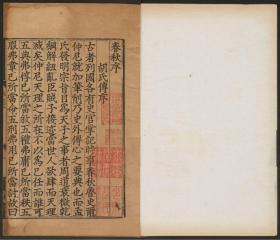 春秋序
胡氏傳序
古者列國各有史官掌記時事春秋魯史爾
仲尼就加筆削乃史外傳心之要典也而孟
氏發明宗旨目為天子之事者周道衰微乾
綱解紐亂臣賊子接迹當世人欲肆而天理
滅矣仲尼天理之所在不以為己任而誰可
五典弗惇己所當敘五禮弗庸己所當秩五
服弗章己所當命五刑弗用己所當討故曰